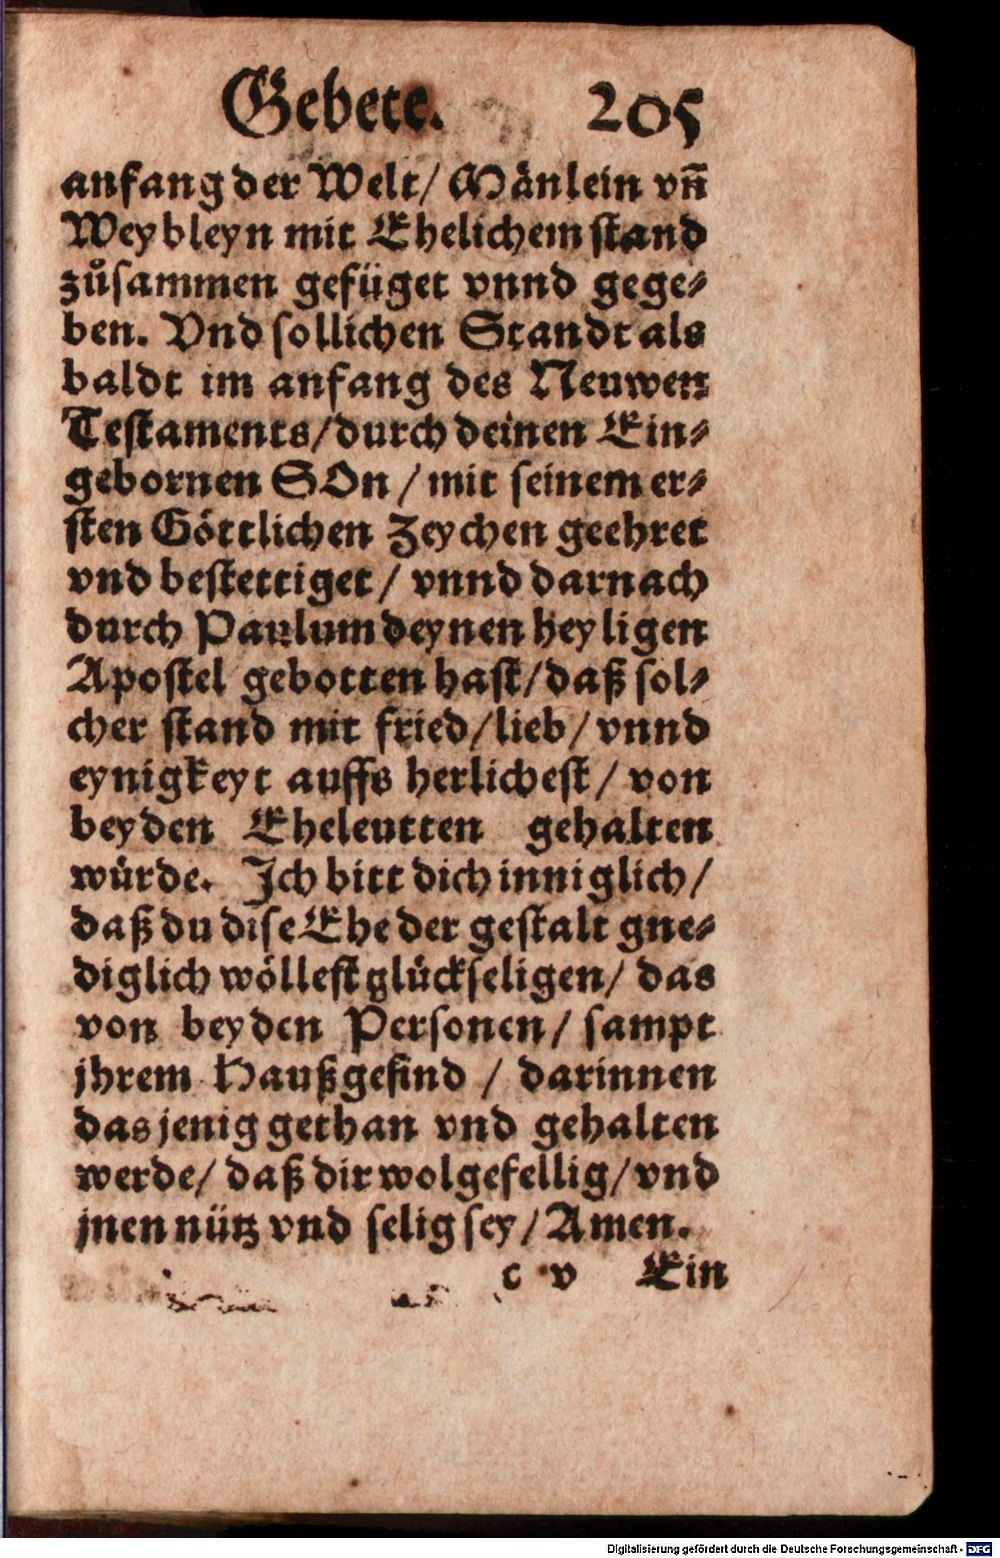 Gebete. 205
anfang der Welt/ Mänlein vñ
Weybleyn mit Ehelichem stand
zůsammen gefüget vnnd gege⸗
ben. Vnd sollichen Standt als
baldt im anfang des Neuwen
Testaments/durch deinen Ein⸗
gebornen SOn / mit seinem er⸗
sten Göttlichen Zeychen geehret
vnd bestettiget / vnnd darnach
durch Paulum deynen heyligen
Apostel gebotten hast/daß sol⸗
cher stand mit fried/lieb/ vnnd
eynigkeyt auffs herlichest / von
beyden Eheleutten gehalten
würde. Ich bitt dich inniglich/
daß du dise Ehe der gestalt gne⸗
diglich wöllest glückseligen/ das
von beyden Personen/ sampt
jhrem Haußgesind / darinnen
das jenig gethan vnd gehalten
werde/ daß dir wolgefellig/ vnd
jnen nütz vnd selig sey/ Amen.
c v Ein
Digitalisierung gefördert durch die Deutsche Forschungsgemeinschaft - DFG